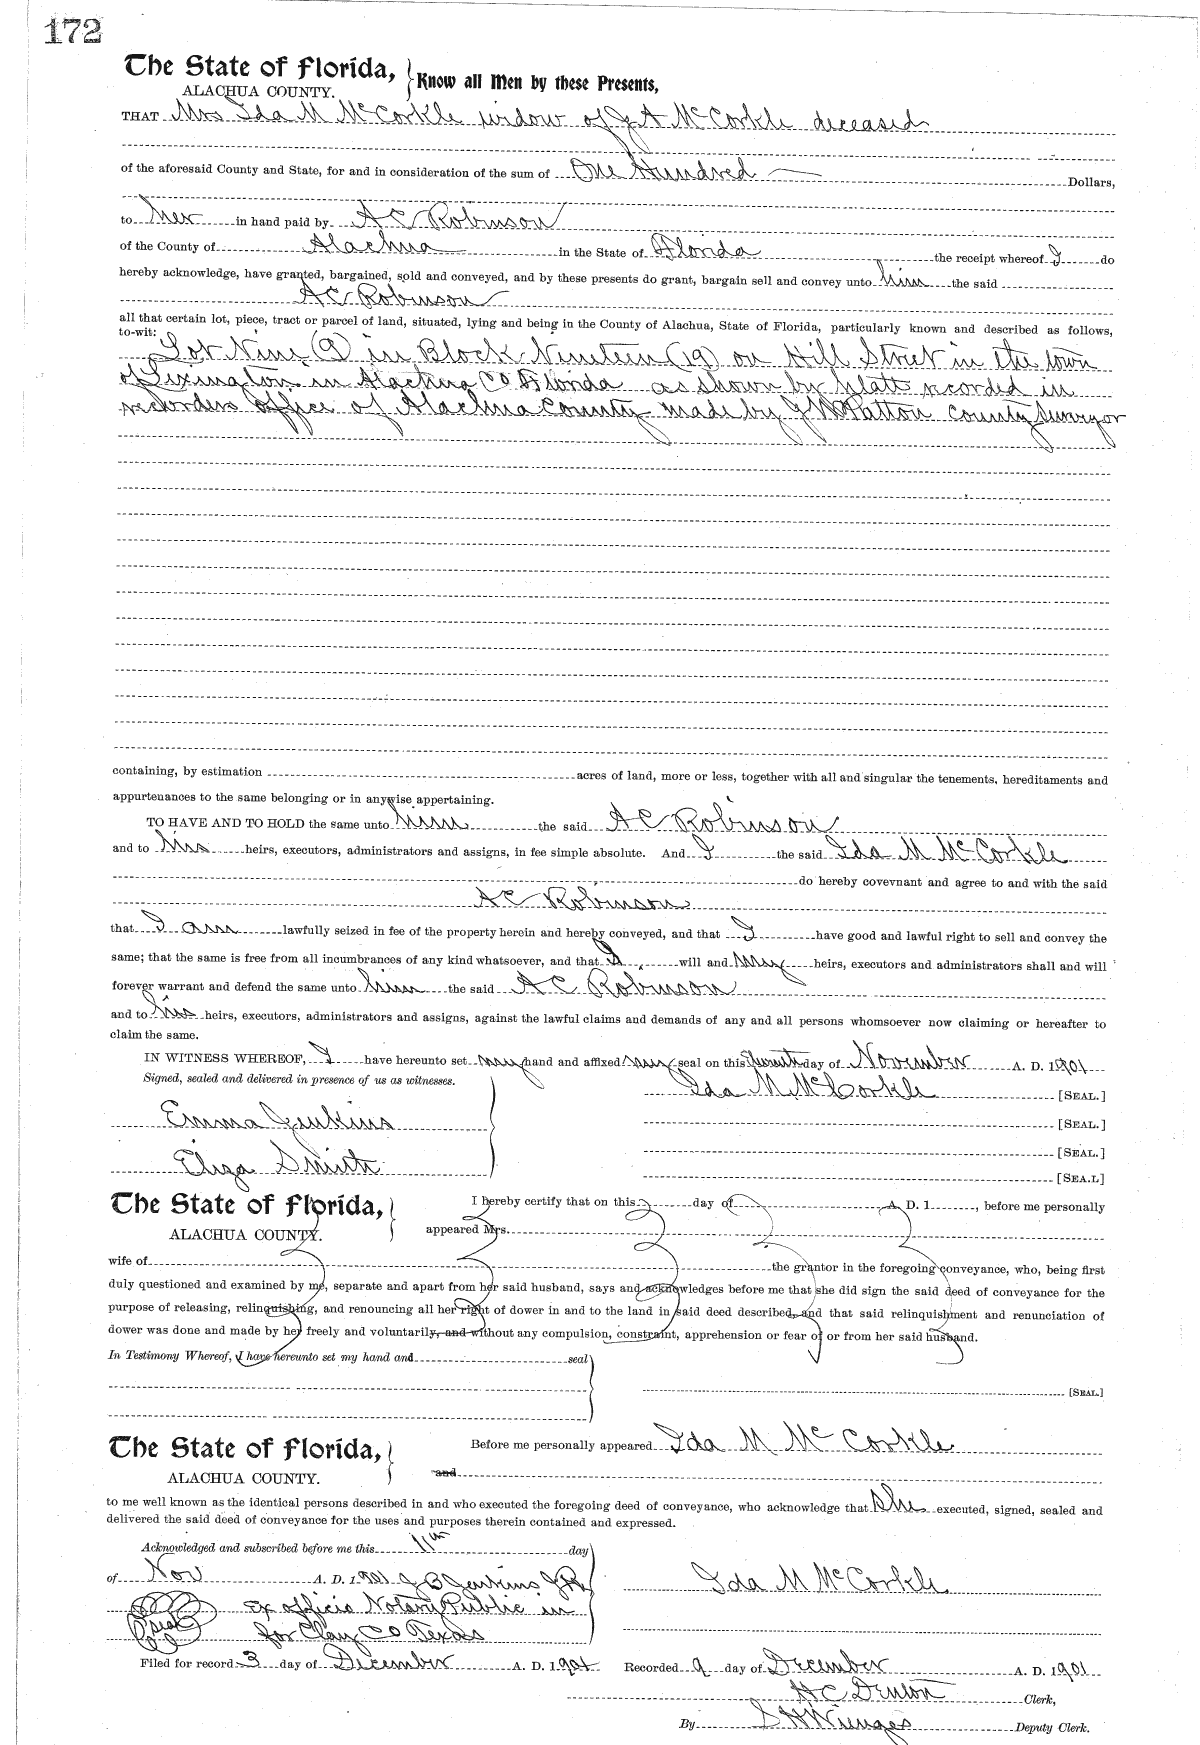 172
The State of Florida, Know all Men by these Presents,
ALACHUA COUNTY.
THAT Mrs Ida M McCorkle widow of J A McCorkle deceased
of the aforesaid County and State, for and in consideration of the sum of One Hundred Dollars,
to her in hand paid by A C Robinson
of the County of Alachua in the State of Florida the receipt whereof I do
hereby acknowledge, have granted, bargained, sold and conveyed, and by these presents do grant, bargain sell and convey unto him the said
A C Robinson
all that certain lot, piece, tract or parcel of land, situated, lying and being in the County of Alachua, State of Florida, particularly known and described as follows,
to-wit:
Lot Nine (9) in Block Nineteen (19) on Hill Street in the town
of Lexington in Alachua Co Florida as shown by platt recorded in
recorders office of Alachua County made by J W Patton County Surveyor
containing, by estimation acres of land, more or less, together with all and singular the tenements, hereditaments and
appurtenances to the same belonging or in anywise appertaining.
TO HAVE AND TO HOLD the same unto him the said A C Robinson
and to his heirs, executors, administrators and assigns, in fee simple absolute. And I the said Ida M McCorkle
do hereby covevnant and agree to and with the said
A C Robinson
that I am lawfully seized in fee of the property herein and hereby conveyed, and that I have good and lawful right to sell and convey the
same; that the same is free from all incumbrances of any kind whatsoever, and that I will and my heirs, executors and administrators shall and will
forever warrant and defend the same unto him the said A C Robinson
and to his heirs, executors, administrators and assigns, against the lawful claims and demands of any and all persons whomsoever now claiming or hereafter to
claim the same.
IN WITNESS WHEREOF, I have hereunto set my hand and affixed my seal on this day of November A. D. 1901
Signed, sealed and delivered in presence of us as witnesses.
Ida M McCorkle [SEAL.]
Emma Jenkins [SEAL.]
[SEAL.]
Eliza Smith
[SEA.L]
The State of Florida, I hereby certify that on this day of A. D. 1 , before me personally
ALACHUA COUNTY. appeared Mrs.
wife of the grantor in the foregoing conveyance, who, being first
duly questioned and examined by me, separate and apart from her said husband, says and acknowledges before me that she did sign the said deed of conveyance for the
purpose of releasing, relinquishing, and renouncing all her right of dower in and to the land in said deed described, and that said relinquishment and renunciation of
dower was done and made by her freely and voluntarily, and without any compulsion, constraint, apprehension or fear of or from her said husband.
In Testimony Whereof, I have hereunto set my hand and seal
[SEAL.]
The State of Florida, Before me personally appeared Ida M McCorkle
ALACHUA COUNTY. and
to me well known as the identical persons described in and who executed the foregoing deed of conveyance, who acknowledge that she executed, signed, sealed and
delivered the said deed of conveyance for the uses and purposes therein contained and expressed.
Acknowledged and subscribed before me this 11th day
of Nov A. D. 1901 J B Jenkins Ida M McCorkle
seal Ex officio Notary Public in
for Clay Co Texas
Filed for record 3 day of December A. D. 1901 Recorded 9 day of December A. D. 1901
H C Denton Clerk,
By S H Wienges Deputy Clerk.